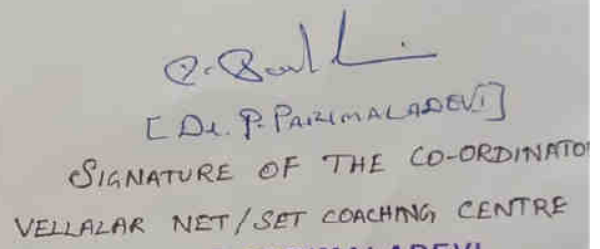 [Dr. P. PARIMALADEVI]
SIGNATURE OF THE CO-ORDINATO
VELLALAR NET/SET COACHING CENTRE